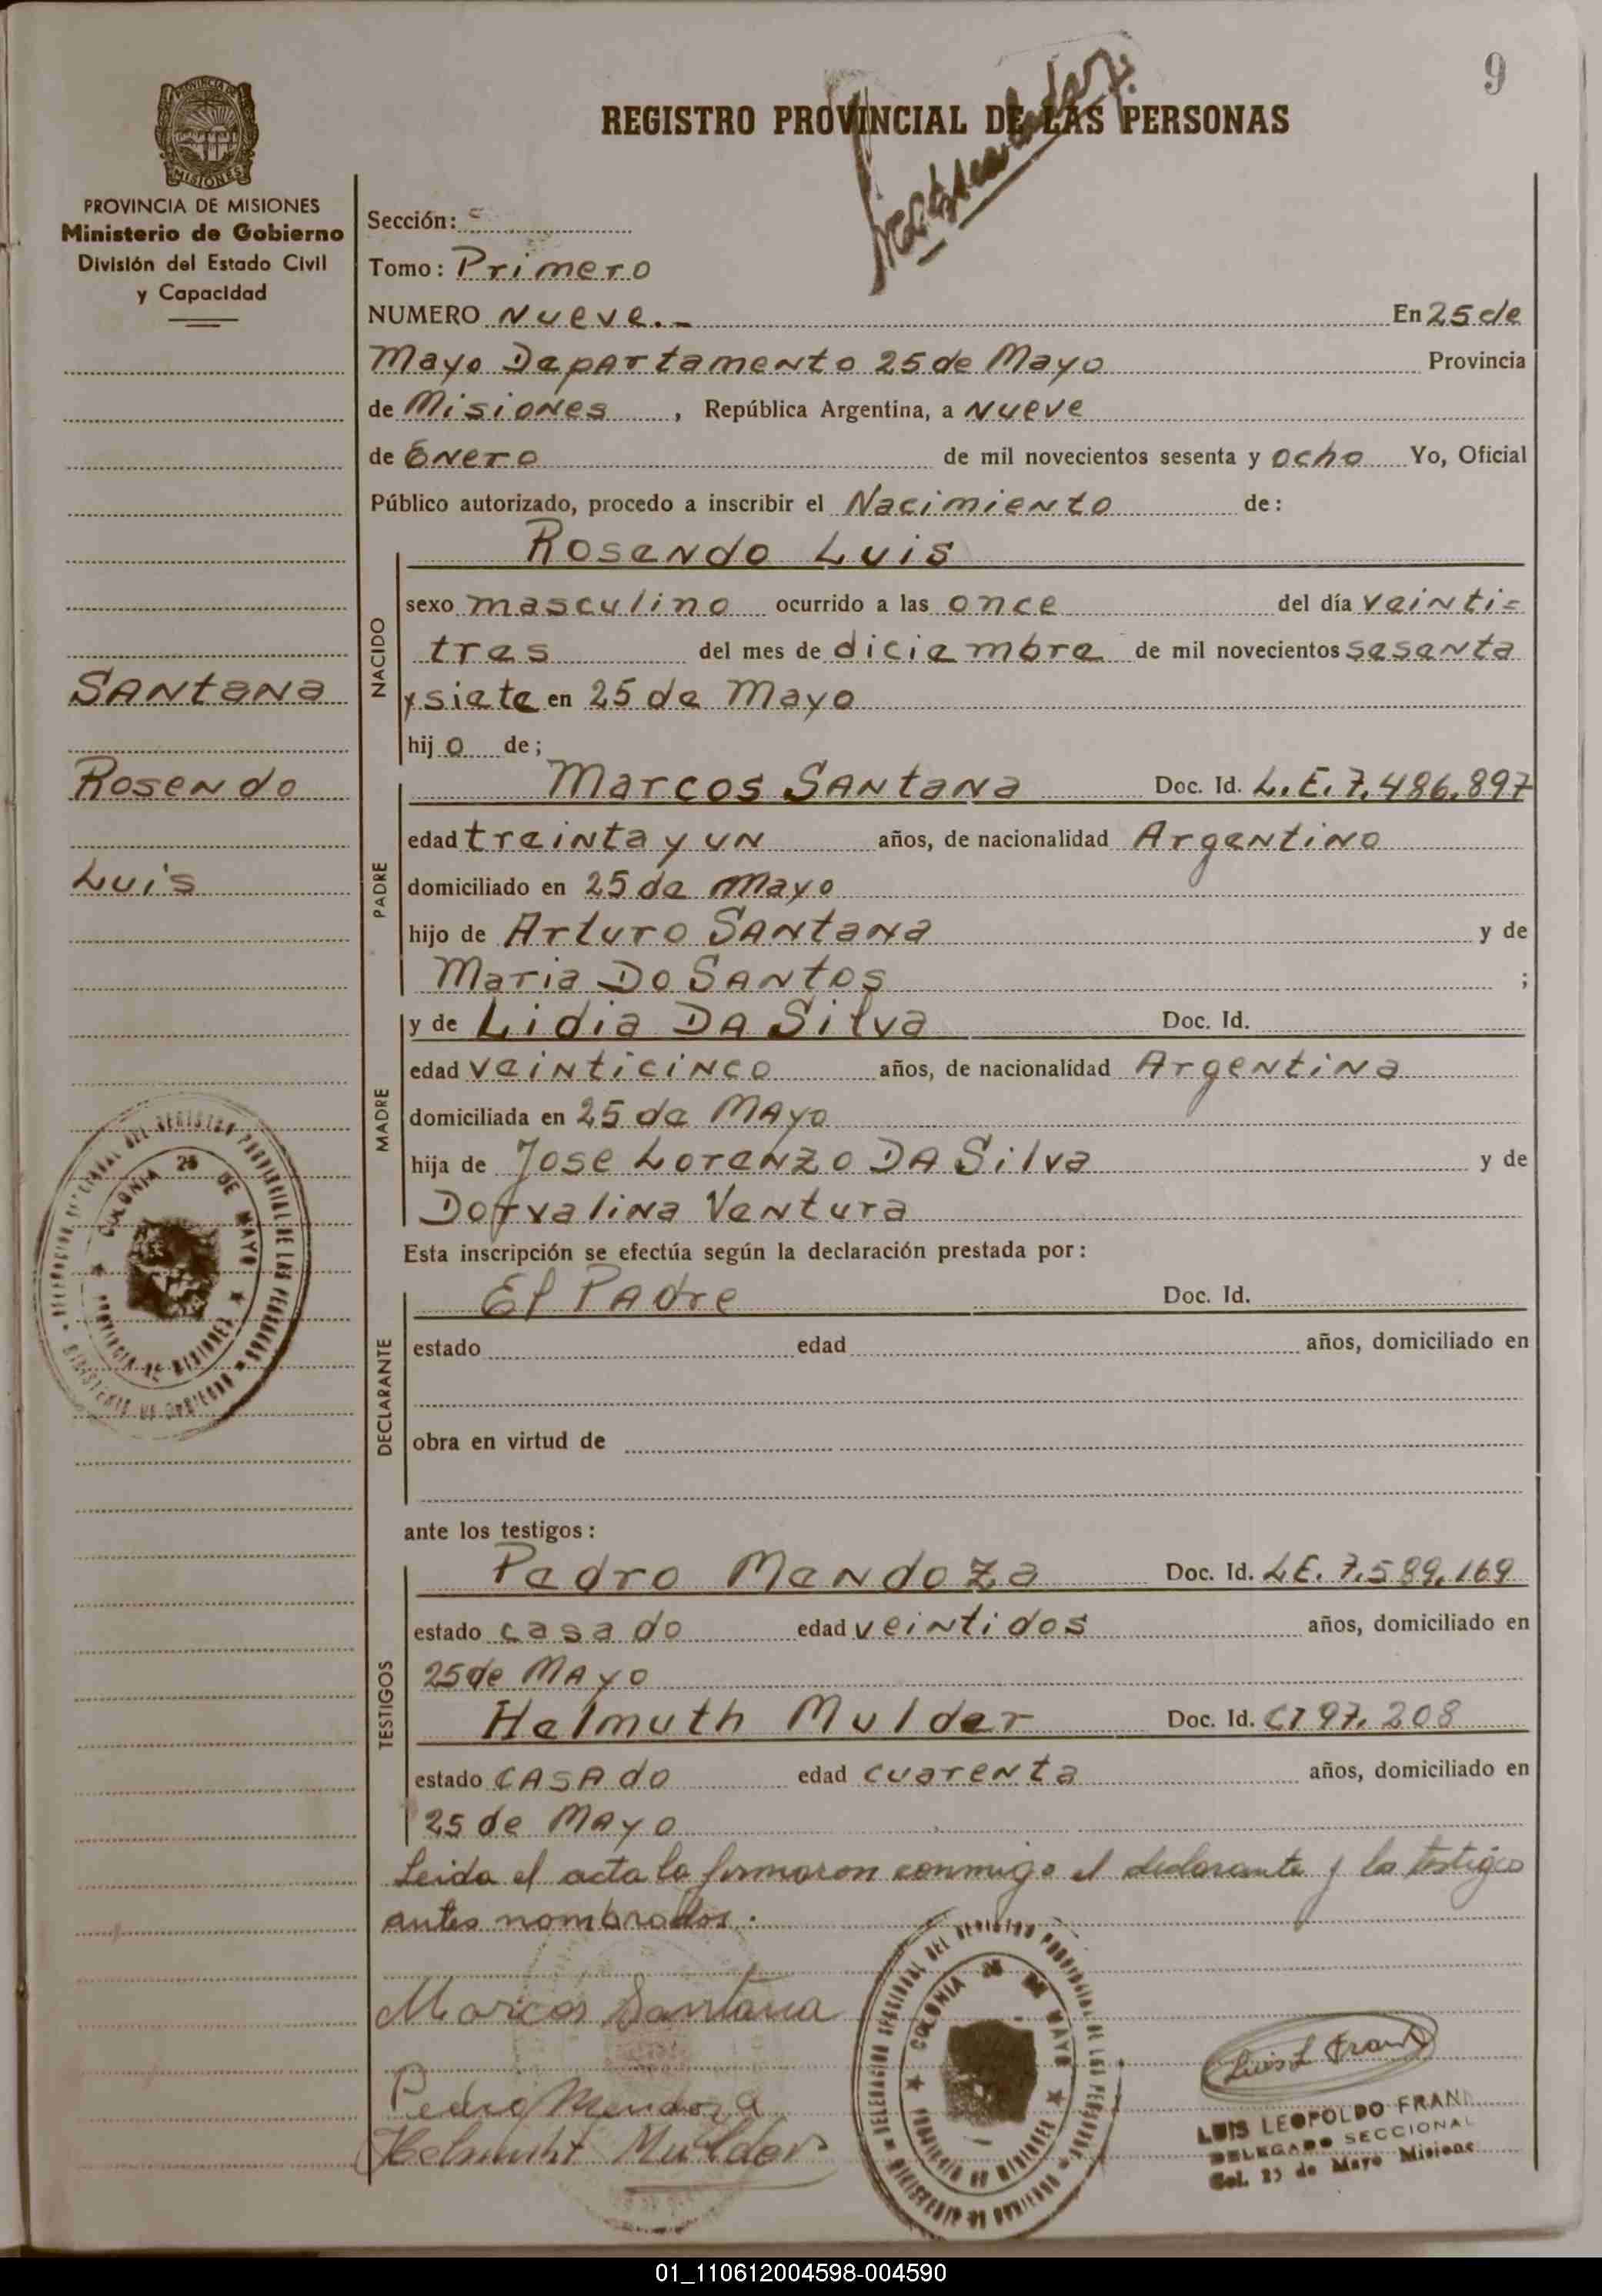 9
REGISTRO PROVINCIAL DE LAS PERSONAS
PROVINCIA DE MISIONES
MISIONES
PROVINCIA DE MISIONES
Ministerio de Gobierno
División del Estado Civil
y Capacidad
Santana
Rosendo
Luis
Sección:
Tomo: Primero
NUMERO Nueve.- En 25 de
Mayo Departamento 25 de Mayo Provincia
de Misiones, República Argentina, a Nueve
de Enero de mil novecientos sesenta y ocho Yo, Oficial
Público autorizado, procedo a inscribir el Nacimiento de:
NACIDO
Rosendo Luis
sexo masculino ocurrido a las once del día veinti=
tres del mes de diciembre de mil novecientos sesenta
y siete en 25 de Mayo
hij o de;
PADRE
Marcos Santana Doc. Id. L.E. 7.486.897
edad treinta y un años, de nacionalidad Argentino
domiciliado en 25 de Mayo
hijo de Arturo Santana y de
Maria Do Santos ;
MADRE
y de Lidia Da Silva Doc. Id.
edad veinticinco años, de nacionalidad Argentina
domiciliada en 25 de Mayo
hija de Jose Lorenzo Da Silva y de
Dorvalina Ventura
Esta inscripción se efectúa según la declaración prestada por:
DECLARANTE
El Padre Doc. Id.
estado edad años, domiciliado en
obra en virtud de
ante los testigos:
TESTIGOS
Pedro Mendoza Doc. Id. L.E. 7.589.169
estado casado edad veintidos años, domiciliado en
25 de Mayo
Helmuth Mulder Doc. Id. CI 97.208
estado casado edad cuarenta años, domiciliado en
25 de Mayo
Leida el acta la firmaron conmigo el declarante y los testigos
antes nombrados.
Marcos Santana
Pedro Mendoza
Helmuht Mulder
COLONIA 25 DE MAYO
PROVINCIA DE MISIONES
COLONIA 25 DE MAYO
PROVINCIA DE MISIONES
Luis L Frank
LUIS LEOPOLDO FRAN
DELEGADO SECCIONAL
Col. 25 de Mayo Misiones
01_110612004598-004590